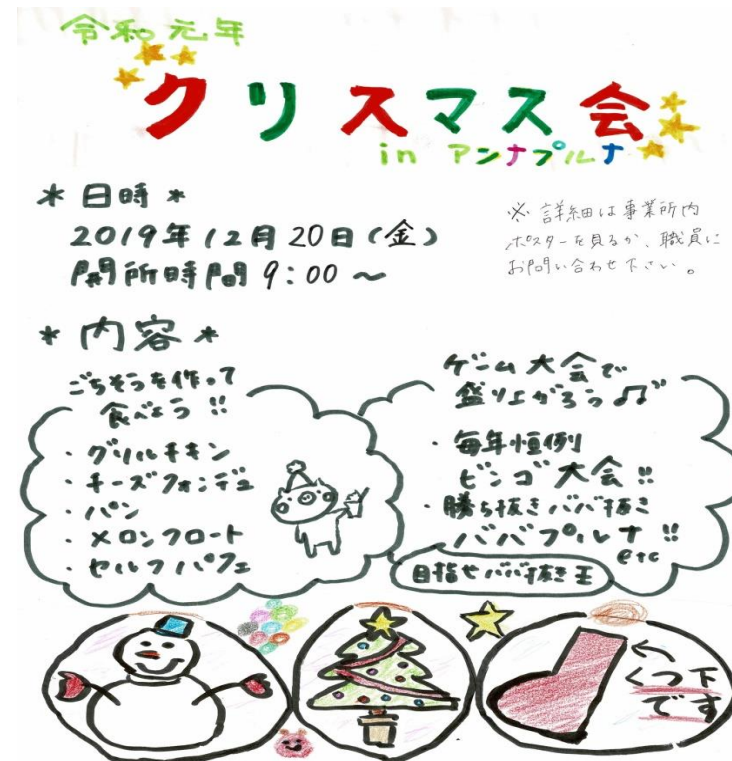 令和元年
クリスマス会
in アンナプルナ
* 日時 *
2019年12月20日(金)
開所時間 9:00 ~
※ 詳細は事業所内
ポスターを見るか、職員に
お問い合わせ下さい。
* 内容 *
ごちそうを作って
食べよう!!
・グリルチキン
・チーズフォンデュ
・パン
・メロンフロート
・セルフパフェ
ゲーム大会で
盛り上がろう♫
・毎年恒例
ビンゴ大会!!
・勝ち抜きババ抜き
ババプルナ!!
etc
目指せババ抜き王
くつ下
です